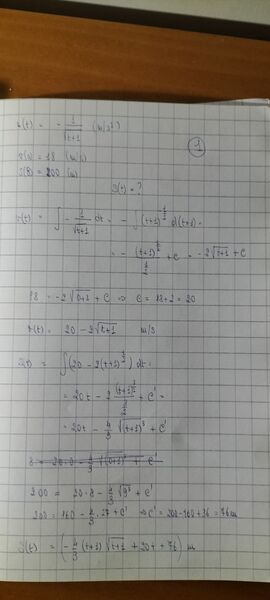 a(t) = - 1/√(t+1) (m/s²)
①
v(0) = 18 (m/s)
s(8) = 200 (m)
s(t) = ?
v(t) = ∫ - 1/√(t+1) dt = - ∫ (t+1)^(-1/2) d(t+1) =
= - (t+1)^(1/2) / (1/2) + C = -2√(t+1) + C
18 = -2√(0+1) + C ⇒ C = 18+2 = 20
v(t) = 20 - 2√(t+1) m/s
s(t) = ∫ (20 - 2(t+1)^(1/2)) dt =
= 20t - 2 (t+1)^(3/2) / (3/2) + C' =
= 20t - 4/3 √(t+1)³ + C'
200 = 20·8 - 4/3 √9³ + C'
200 = 160 - 4/3 · 27 + C' ⇒ C' = 200-160+36 = 76m
s(t) = (- 4/3 (t+1) √(t+1) + 20t + 76) m